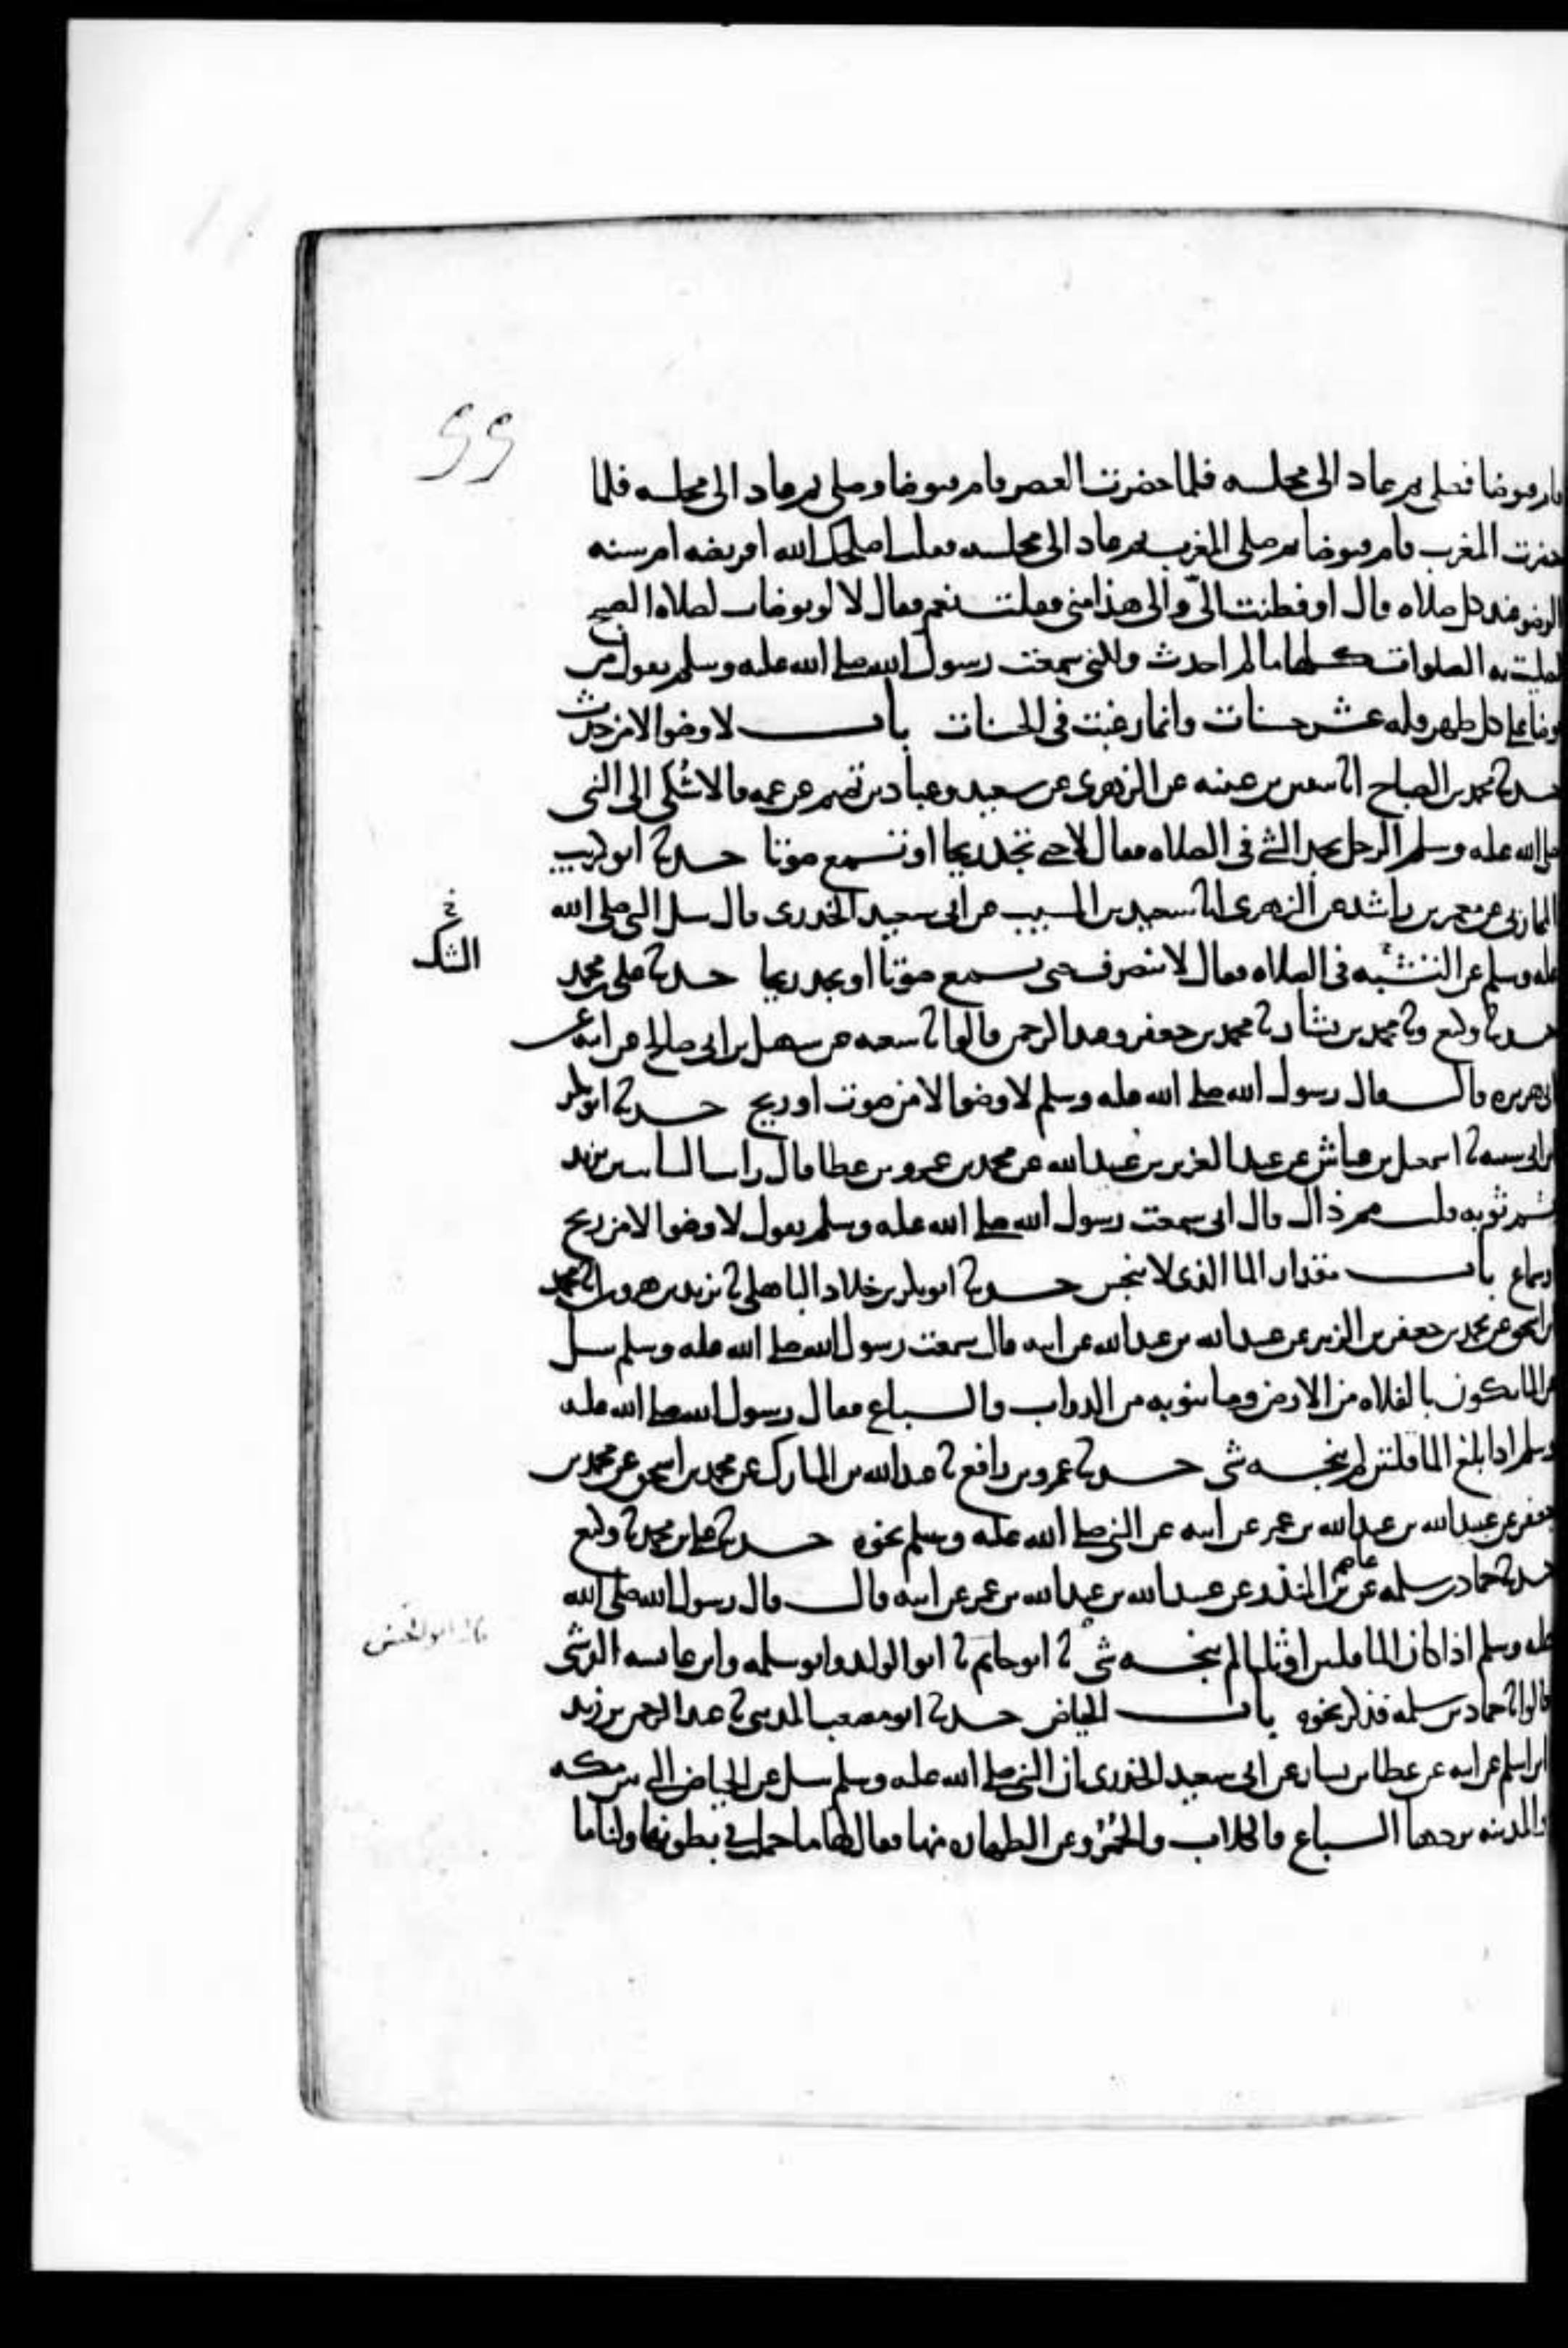 55
قام فتوضا فصلى ثم عاد الى مجلسه فلما حضرت العصر قام فتوضا وصلى ثم عاد الى مجلسه فلما
حضرت المغرب قام فتوضا ثم صلى المغرب ثم عاد الى مجلسه فقلت اصلحك الله افريضه ام سنه
الوضو عند كل صلاه قال اوفطنت الىّ والى هذا منى فقلت نعم فقال لا لو توضات لصلاه الصبح
لصليت به الصلوات كلها ما لم احدث ولكنى سمعت رسول الله صلى الله عليه وسلم يقول من
توضا على كل طهر فله عشر حسنات وانما رغبت فى الحسنات باب لا وضو الا من حدث
حدثنا محمد بن الصباح انا سفين بن عيينه عن الزهرى عن سعيد وعباد بن تميم عن عمه قال شُكى الى النبى
صلى الله عليه وسلم الرجل يجد الشى فى الصلاه فقال لا حتى تجد ريحا او تسمع صوتا حدثنا ابو كريب
المحاربى عن معمر بن راشد عن الزهرى انا سعيد بن المسيب عن ابى سعيد الخدرى قال سل النبى صلى الله
خ
الشك
عليه وسلم عن التشبه فى الصلاه فقال لا ينصرف حتى يسمع صوتا او يجد ريحا حدثنا على بن محمد
حدثنا وكيع ونا محمد بن بشار نا محمد بن جعفر وعبد الرحمن قالوا نا شعبه عن سهيل بن ابى صالح عن ابيه عن
ابى هريره قال قال رسول الله صلى الله عليه وسلم لا وضو الا من صوت او ريح حدثنا ابو بكر
بن ابى شيبه نا اسمعيل بن عياش عن عبد العزيز بن عبيد الله عن محمد بن عمرو بن عطا قال رايت السايب بن يزيد
يشم ثوبه قلت مم ذاك قال انى سمعت رسول الله صلى الله عليه وسلم يقول لا وضو الا من ريح
او سماع باب مقدار الما الذى لا ينجس حدثنا ابو بكر بن خلاد الباهلى نا يزيد بن هرون انا محمد
بن اسحق عن محمد بن جعفر بن الزبير عن عبيد الله بن عبد الله عن ابيه قال سمعت رسول الله صلى الله عليه وسلم سل
عن الما يكون بالفلاه من الارض وما ينوبه من الدواب والسباع فقال رسول الله صلى الله عليه
وسلم اذا بلغ الما قلتين لم ينجسه شى حدثنا عمرو بن رافع نا عبد الله بن المبارك عن محمد بن اسحق عن محمد بن
جعفر عن عبيد الله بن عبد الله بن عمر عن ابيه عن النبى صلى الله عليه وسلم نحوه حدثنا على بن محمد نا وكيع
حدثنا حماد بن سلمه عن عاصم بن المنذر عن عبيد الله بن عبد الله بن عمر عن ابيه قال قال رسول الله صلى الله
قال ابو الحسن
عليه وسلم اذا كان الما قلتين او ثلثا لم ينجسه شى نا ابو حاتم نا ابو الوليد وابو سلمه وابن عايشه القرشى
قالوا نا حماد بن سلمه فذكر نحوه باب الحياض حدثنا ابو مصعب المدينى نا عبد الرحمن بن زيد
بن اسلم عن ابيه عن عطا بن يسار عن ابى سعيد الخدرى ان النبى صلى الله عليه وسلم سل عن الحياض التى بين مكه
والمدينه تردها السباع والكلاب والحُمُر وعن الطهاره منها فقال لها ما حملت فى بطونها ولنا ما